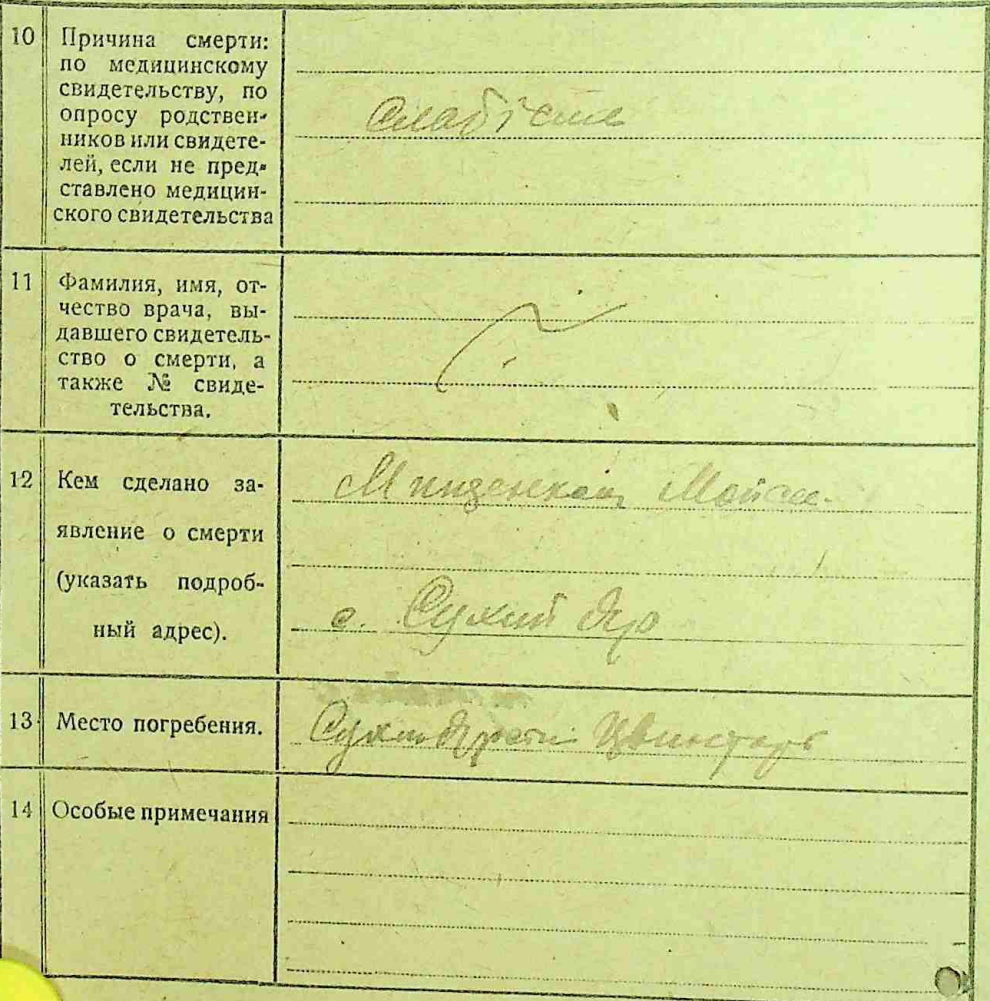 10 Причина смерти:
по медицинскому
свидетельству, по
опросу родствен-
ников или свидете-
лей, если не пред-
ставлено медицин-
ского свидетельства
Слабість
11 Фамилия, имя, от-
чество врача, вы-
давшего свидетель-
ство о смерти, а
также № свиде-
тельства.
12 Кем сделано за-
явление о смерти
(указать подроб-
ный адрес).
с. Сухий Яр
13 Место погребения.
Цвинтарь
14 Особые примечания